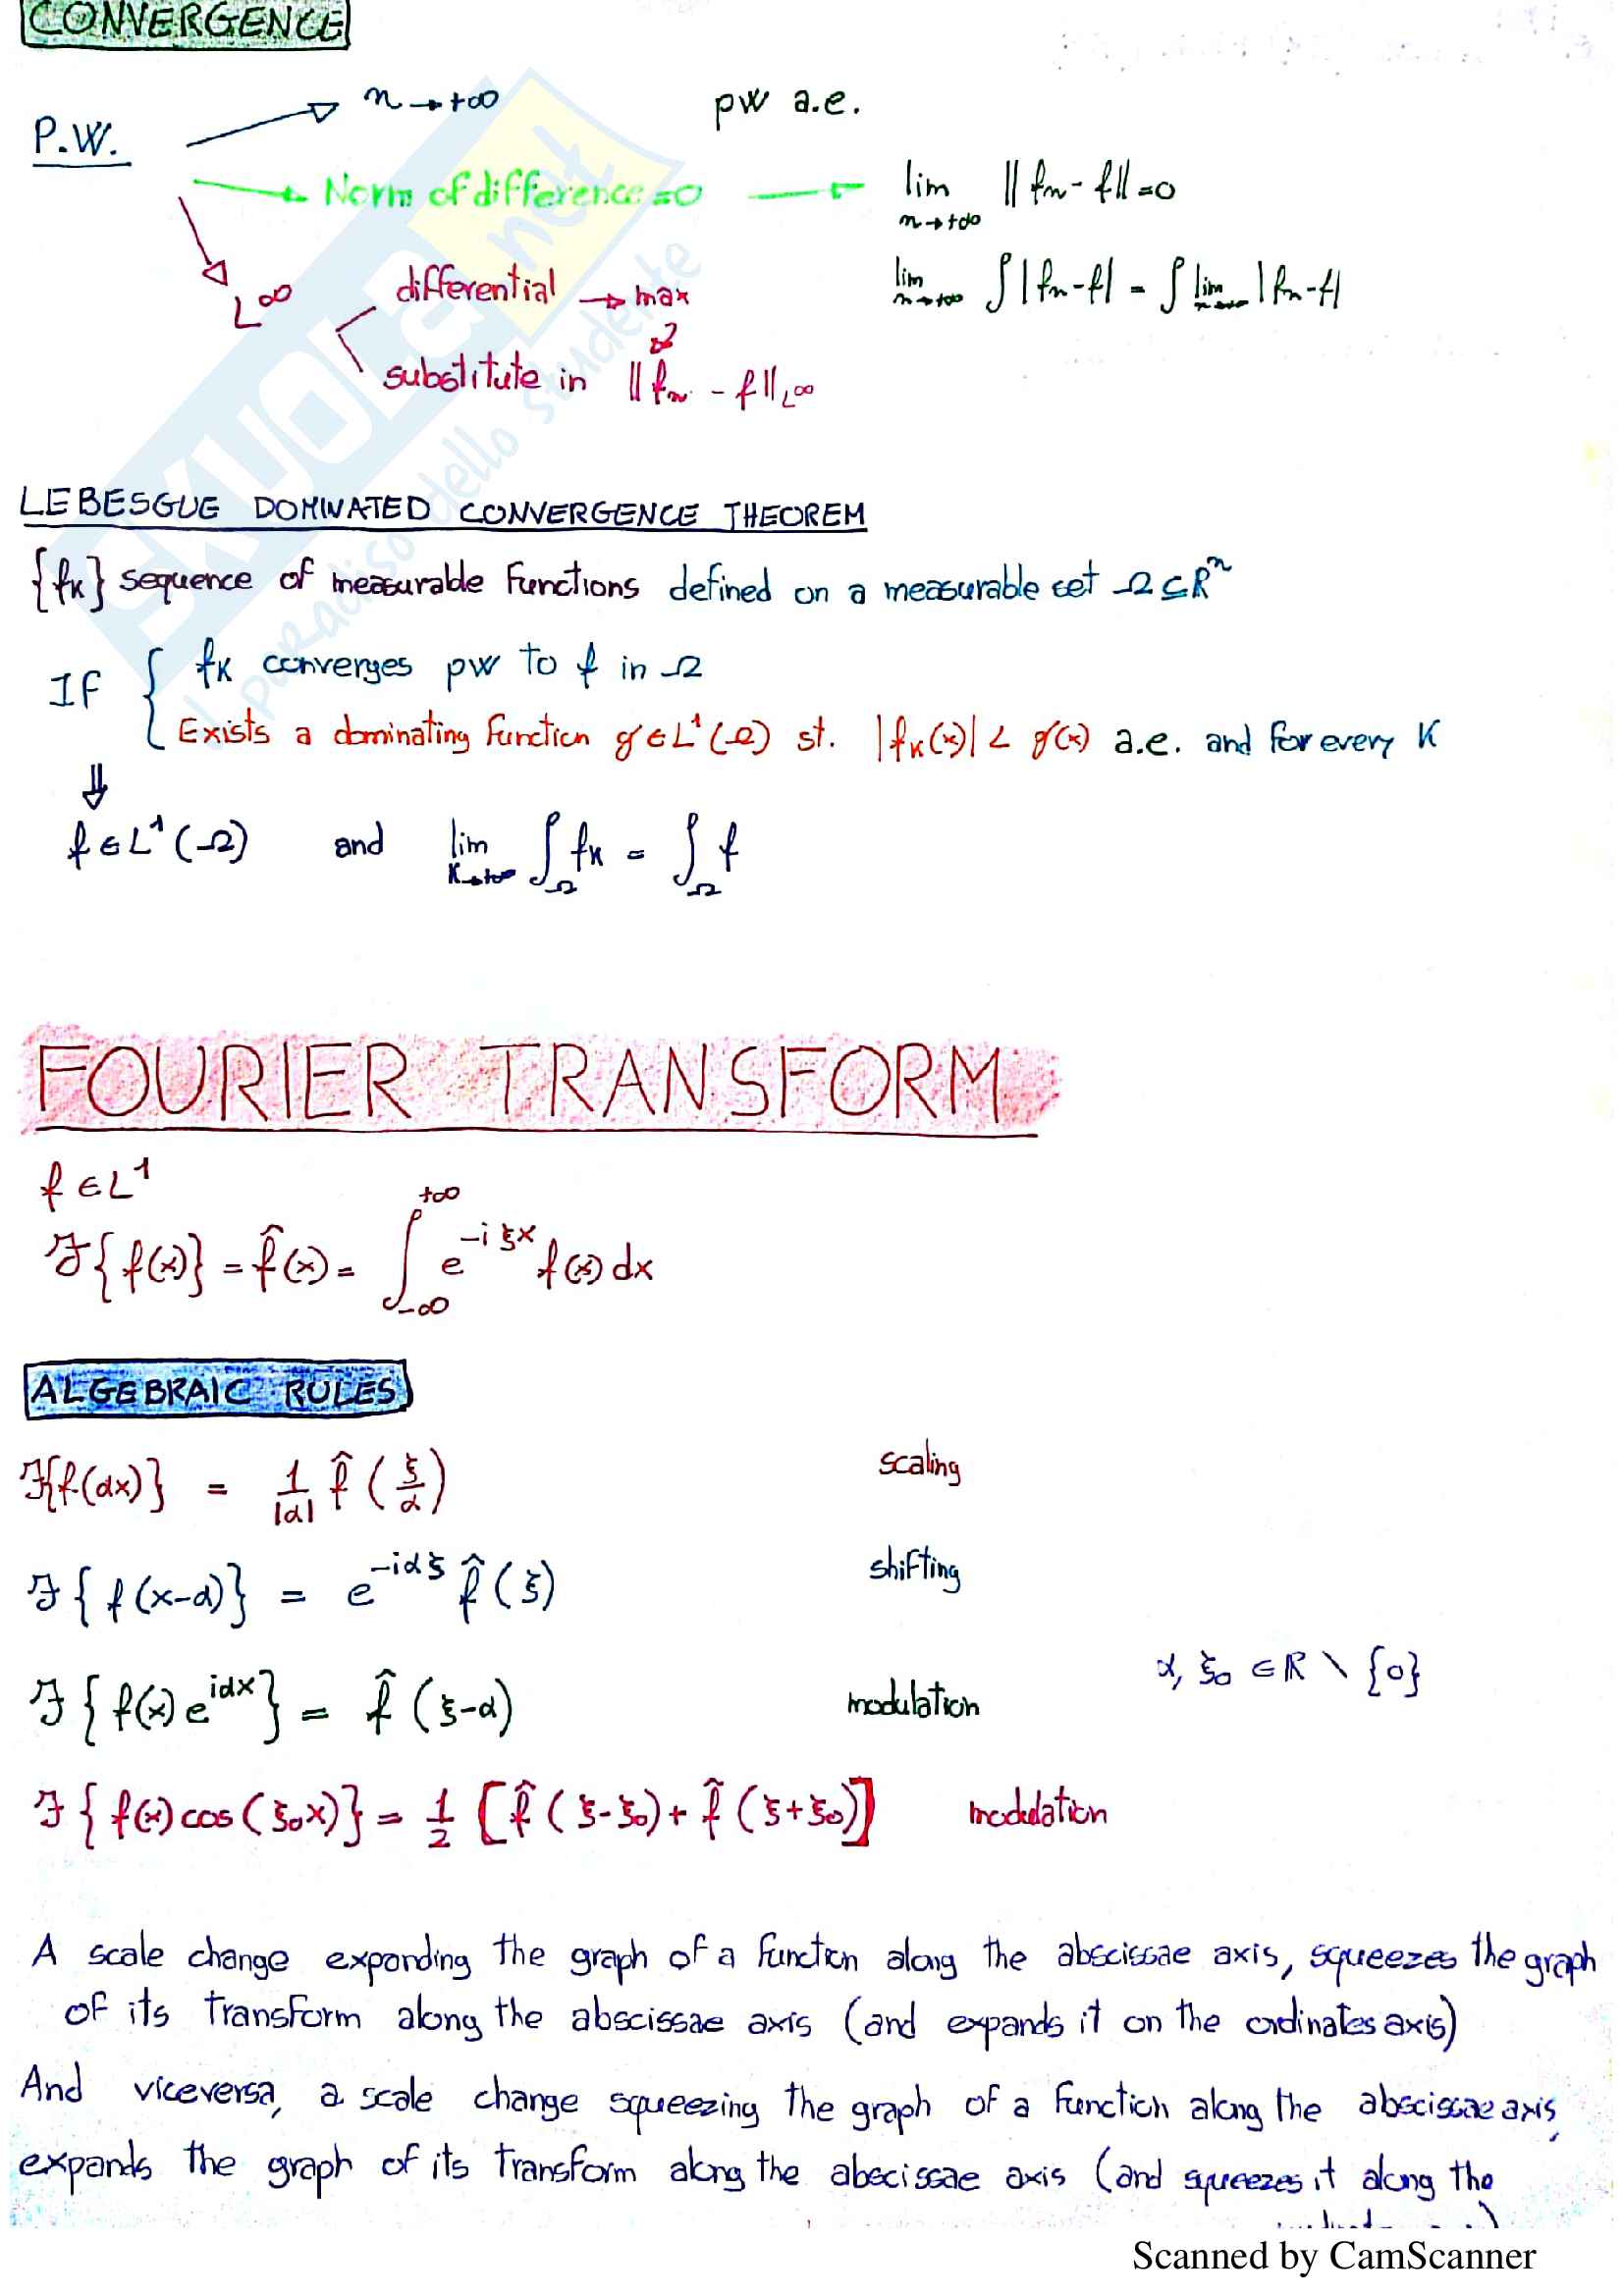 CONVERGENCE
P.W.
n → +∞
pw a.e.
Norm of difference = 0 → lim n→+∞ || fn - f || = 0
lim n→+∞ ∫ | fn - f | = ∫ lim n→+∞ | fn - f |
L∞
differential → max
substitute in || fn - f || L∞
LEBESGUE DOMINATED CONVERGENCE THEOREM
{fk} sequence of measurable functions defined on a measurable set Ω ⊆ Rⁿ
IF { fk converges pw to f in Ω
Exists a dominating function g ∈ L¹(Ω) st. |fk(x)| < g(x) a.e. and for every K
⇓
f ∈ L¹(Ω) and lim K→+∞ ∫Ω fk = ∫Ω f
FOURIER TRANSFORM
f ∈ L¹
ℱ{f(x)} = f̂(x) = ∫_{-∞}^{+∞} e^{-iξx} f(x) dx
ALGEBRAIC RULES
ℱ{f(αx)} = 1/|α| f̂(ξ/α) scaling
ℱ{f(x-α)} = e^{-iαξ} f̂(ξ) shifting
α, ξ₀ ∈ ℝ \ {0}
ℱ{f(x) e^{iαx}} = f̂(ξ-α) modulation
ℱ{f(x) cos(ξ₀x)} = 1/2 [f̂(ξ-ξ₀) + f̂(ξ+ξ₀)] modulation
A scale change expanding the graph of a function along the abscissae axis, squeezes the graph
of its transform along the abscissae axis (and expands it on the ordinates axis)
And viceversa, a scale change squeezing the graph of a function along the abscissae axis,
expands the graph of its transform along the abscissae axis (and squeezes it along the
Scanned by CamScanner
SKUOLA.net
il paradiso dello studente